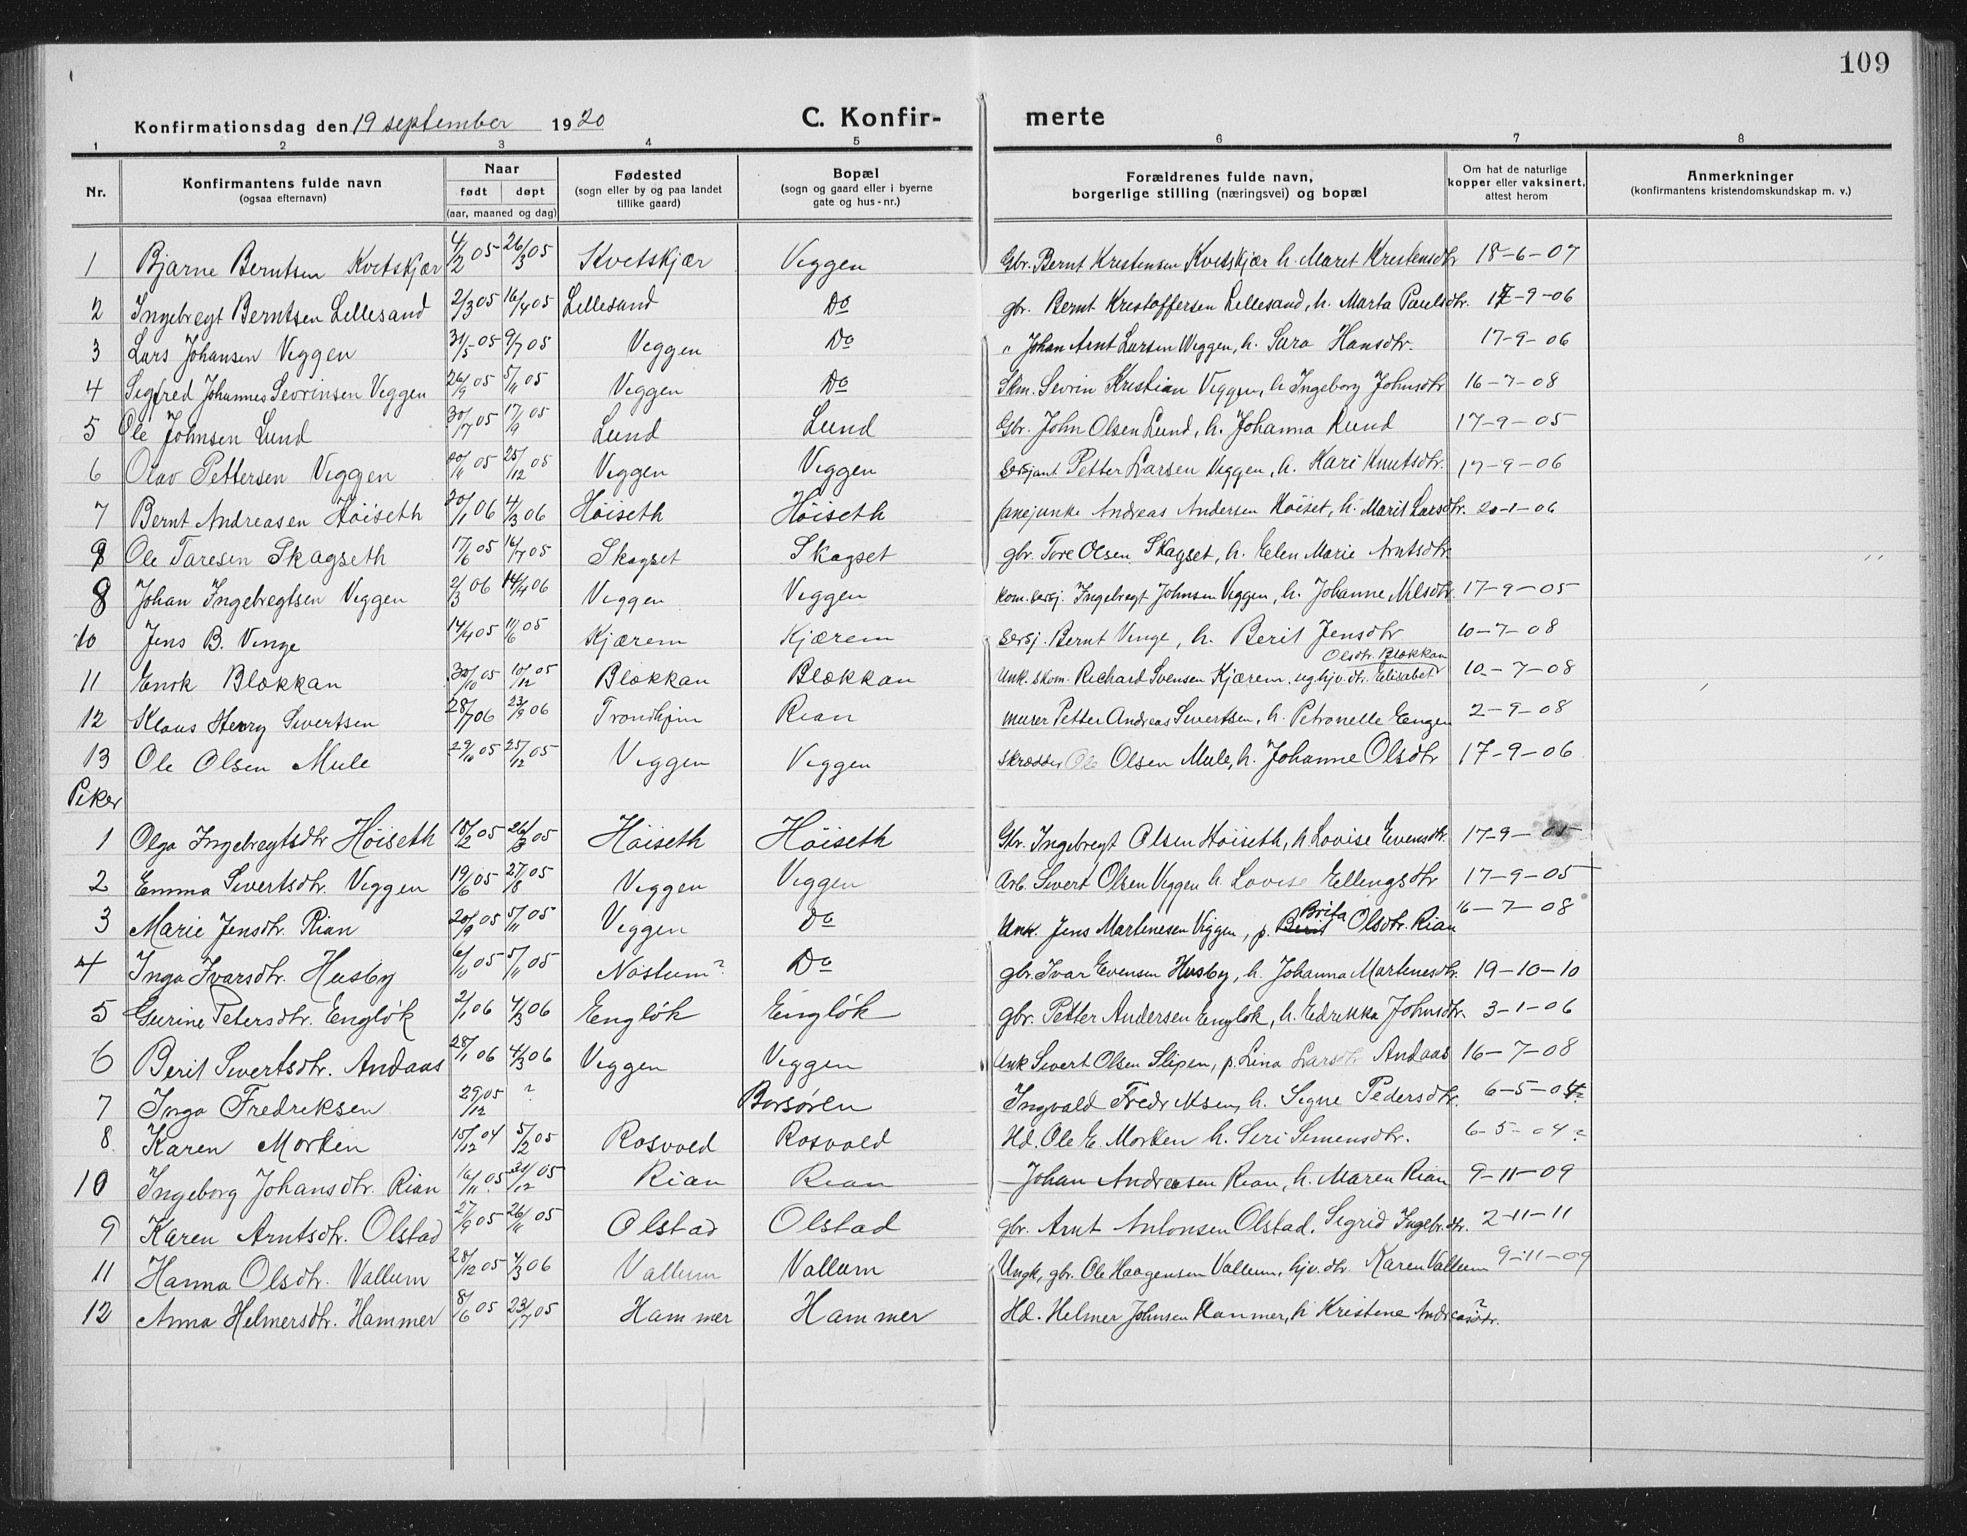 109
Konfirmationsdag den 19 september 1920 C. Konfir- merte
1 2 3 4 5 6 7 8
Nr. Konfirmantens fulde navn (ogsaa efternavn) Naar født døpt (aar, maaned og dag) Fødested (sogn eller by og paa landet tillike gaard) Bopæl (sogn og gaard eller i byerne gate og hus-nr.) Forældrenes fulde navn, borgerlige stilling (næringsvei) og bopæl Om hat de naturlige kopper eller vaksinert, attest herom Anmerkninger (konfirmantens kristendomskundskap m. v.)
1 Bjarne Berntsen Kvetskjær 4/2 05 26/3 05 Kvetskjær Viggen Gbr. Bernt Kristensen Kvetskjær h. Maret Kristensdtr 18-6-07
2 Ingebregt Berntsen Lillesand 2/3 05 16/4 05 Lillesand Do gbr. Bernt Kristoffersen Lillesand, h. Marta Paulsdtr. 17-9-06
3 Lars Johansen Viggen 31/5 05 9/7 05 Viggen Do " Johan Arnt Larsen Viggen, h. Sara Hansdtr. 17-9-06
4 Sigfred Johannes Sevrinsen Viggen 26/9 05 5/11 05 Viggen Do Skm. Sevrin Kristian Viggen, h Ingeborg Johnsdtr 16-7-08
5 Ole Johnsen Lund 30/7 05 17/9 05 Lund Lund Gbr. John Olsen Lund, h. Johanna Lund 17-9-05
6 Olav Pettersen Viggen 05 25/12 05 Viggen Viggen sersjant Petter Larsen Viggen, h. Kari Knutsdtr. 17-9-06
7 Bernt Andreasen Höiseth 20/1 06 4/3 06 Höiseth Höiseth fanejunke Andreas Andersen Höiset, h. Marit Larsdtr. 20-1-06
9 Ole Taresen Skagseth 17/6 05 16/7 05 Skagset Skagset gbr. Tore Olsen Skagset, h. Elen Marie Arntsdtr
8 Johan Ingebregtsen Viggen 2/3 06 14/4 06 Viggen Viggen kom. sersj. Ingebregt Johnsen Viggen, h. Johanne Nilsdtr. 17-9-05
10 Jens B. Vinge 14/4 05 11/6 05 Kjærem Kjærem sersj. Bernt Vinge, h. Berit Jensdtr 10-7-08
11 Enok Blokkan 30/10 05 10/12 05 Blokkan Blokkan Unk. skom. Richard Svensen Kjærem, ughjv. dtr. Elisabet Olsdtr. Blokkan 10-7-08
12 Klaus Henry Sivertsen 28/7 06 23/9 06 Trondhjm Rian murer Petter Andreas Sivertsen, h. Petronelle Engen 2-9-08
13 Ole Olsen Mule 29/10 05 25/12 05 Viggen Viggen skrædder Ole Olsen Mule, h. Johanne Olsdtr 17-9-06
Piker
1 Olga Ingebregtsdtr Höiseth 18/2 05 26/3 05 Höiseth Höiseth Gbr. Ingebregt Olsen Höiseth, h Lovise Evensdtr. 17-9-05
2 Emma Sivertsdtr. Viggen 19/6 05 27/8 05 Viggen Viggen Arb. Sivert Olsen Viggen h. Lovise Ellingsdtr 17-9-05
3 Marie Jensdtr. Rian 20/9 05 5/11 05 Viggen Do Unk. Jens Martinesen Viggen, p. Berit Brita Olsdtr. Rian 16-7-08
4 Inga Ivarsdtr. Husby 05 5/11 05 Nostum? Do gbr. Ivar Evensen Husby, h. Johanna Martinesdtr. 19-10-10
5 Gurine Petersdtr. Englök 2/1 06 4/3 06 Englök Englök gbr. Petter Andersen Englök, h. Edrikka Johnsdtr. 3-1-06
6 Berit Sivertsdtr. Andaas 28/1 06 4/3 06 Viggen Viggen Unk Sivert Olsen Slipen, p. Lina Larsdtr Andaas 16-7-08
7 Inga Fredriksen 29/12 05 ? Borsören Ingvald Fredriksen, h. Signe Pedersdtr. 6-5-04?
8 Karen Morken 15/12 04 5/2 05 Rosvold Rosvold Hd. Ole E. Morken h. Siri Simensdtr. 6-5-04?
10 Ingeborg Johansdtr. Rian 16/11 05 31/12 05 Rian Rian Johan Andreasen Rian, h. Maren Rian 9-11-09
9 Karen Arntsdtr. Olstad 27/9 05 26/11 05 Olstad Olstad gbr. Arnt Antonsen Olstad, Sigrid Ingebr.dtr. 2-11-11
11 Hanna Olsdtr. Vallum 28/12 05 4/3 06 Vallum Vallum Ungk, gbr. Ole Haagensen Vallum, hjv. dtr Karen Vallum 9-11-09
12 Anna Helmersdtr. Hammer 8/6 05 23/7 05 Hammer Hammer Hd. Helmer Johnsen Hammer, h Kristine Andreasdtr.?